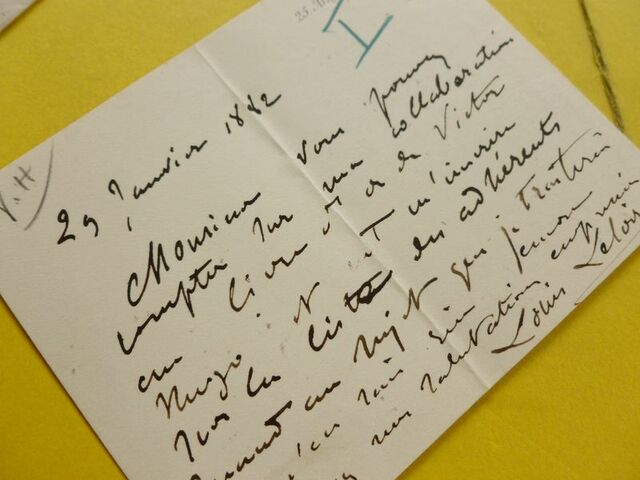 25.
I
V.H
29 Janvier 1882
Monsieur vous pouvez
compter sur ma collaboration
au livre d'or de Victor
Hugo et m'inscrire
sur la liste des adhérents
Quant au sujet que je traiterai
rien encore
mes salutations
Louis Leloir